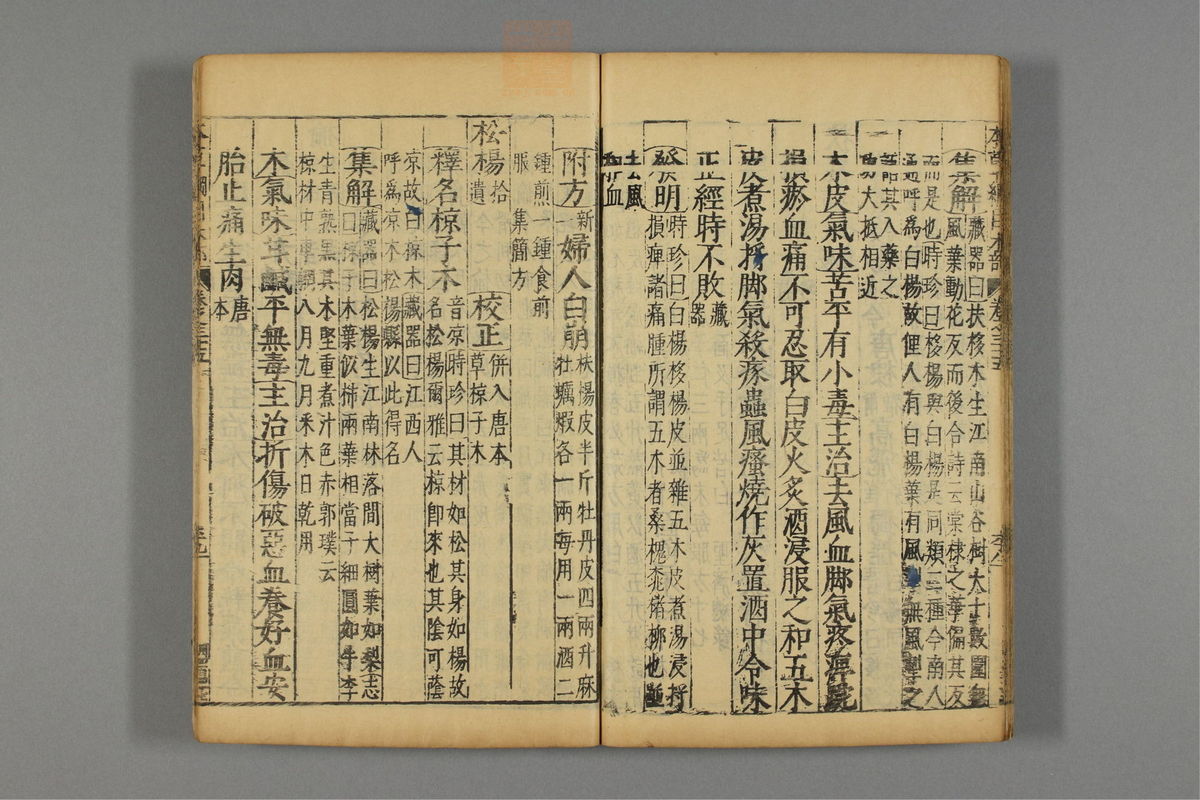 集解藏器曰扶栘木生江南山谷樹大十數圍無
風葉動花反而後合詩云棠棣之華偏其反
而是也時珍曰栘楊與白楊是同類二種今南人
通呼為白楊故俚人有白楊葉有風掣無風掣之
語其入藥之
功大抵相近
木皮氣味苦平有小毒主治去風血脚氣疼痺踠
損瘀血痛不可忍取白皮火炙酒浸服之和五木
皮煮湯捋脚氣殺瘃蟲風瘙燒作灰置酒中令味
正經時不敗藏器
發明時珍曰白楊栘楊皮並雜五木皮煮湯浸捋
損痺諸痛腫所謂五木者桑槐桃楮柳也並
去風
和血
附方新一婦人白崩扶楊皮半斤牡丹皮四兩升麻
牡蠣煆各一兩每用一兩酒二
鍾煎一鍾食前
服 集簡方
松楊拾遺 校正併入唐本草椋子木
釋名椋子木音凉時珍曰其材如松其身如楊故
名松楊爾雅云椋即來也其陰可蔭
凉故曰椋木藏器曰江西人
呼為凉木松楊縣以此得名
集解藏器曰松楊生江南林落間大樹葉如梨志
曰椋子木葉似柿兩葉相當子細圓如牛李
生青熟黑其木堅重煮汁色赤郭璞云
椋材中車輞八月九月采木日乾用
木氣味甘鹹平無毒主治折傷破惡血養好血安
胎止痛生肉唐本